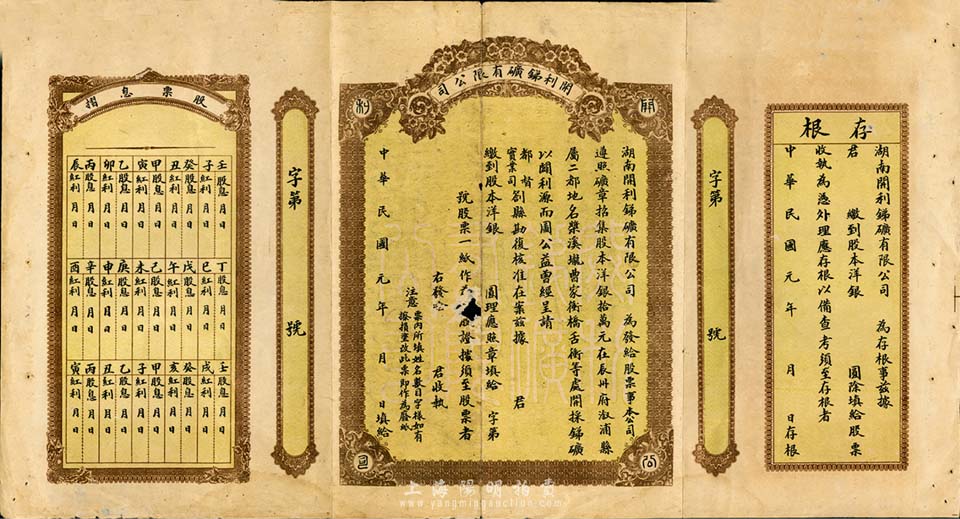 存根
湖南開利銻礦有限公司 為存根事茲據
君 繳到股本洋銀 圓除填給股票
收執為憑外理應存根以備查考須至存根者
中華民國元年 月 日存根
字第 號
開利銻礦有限公司
開 利 公 司
湖南開利銻礦有限公司 為發給股票事本公司
遵照礦章招集股本洋銀拾萬元在辰州府溆浦縣
屬二都地名槳溪壠曹家衝橋舌衝等處開採銻礦
以闢利源而圖公益曾經呈請
都督
實業司劄縣勘復核准在案茲據 君
繳到股本洋銀 圓理應照章填給 字第
號股票一紙作 證據須至股票者
右發給 君收執
注意 票內所填姓名數目字樣如有
擦損塗改此票即作為廢紙
中華民國元年 月 日填給
字第 號
股票息摺
壬股息 月 日
子紅利 月 日
癸股息 月 日
丑紅利 月 日
甲股息 月 日
寅紅利 月 日
乙股息 月 日
卯紅利 月 日
丙股息 月 日
辰紅利 月 日
丁股息 月 日
巳紅利 月 日
戊股息 月 日
午紅利 月 日
己股息 月 日
未紅利 月 日
庚股息 月 日
申紅利 月 日
辛股息 月 日
酉紅利 月 日
壬股息 月 日
戌紅利 月 日
癸股息 月 日
亥紅利 月 日
甲股息 月 日
子紅利 月 日
乙股息 月 日
丑紅利 月 日
丙股息 月 日
寅紅利 月 日
上海陽明拍賣
www.yangmingauction.com